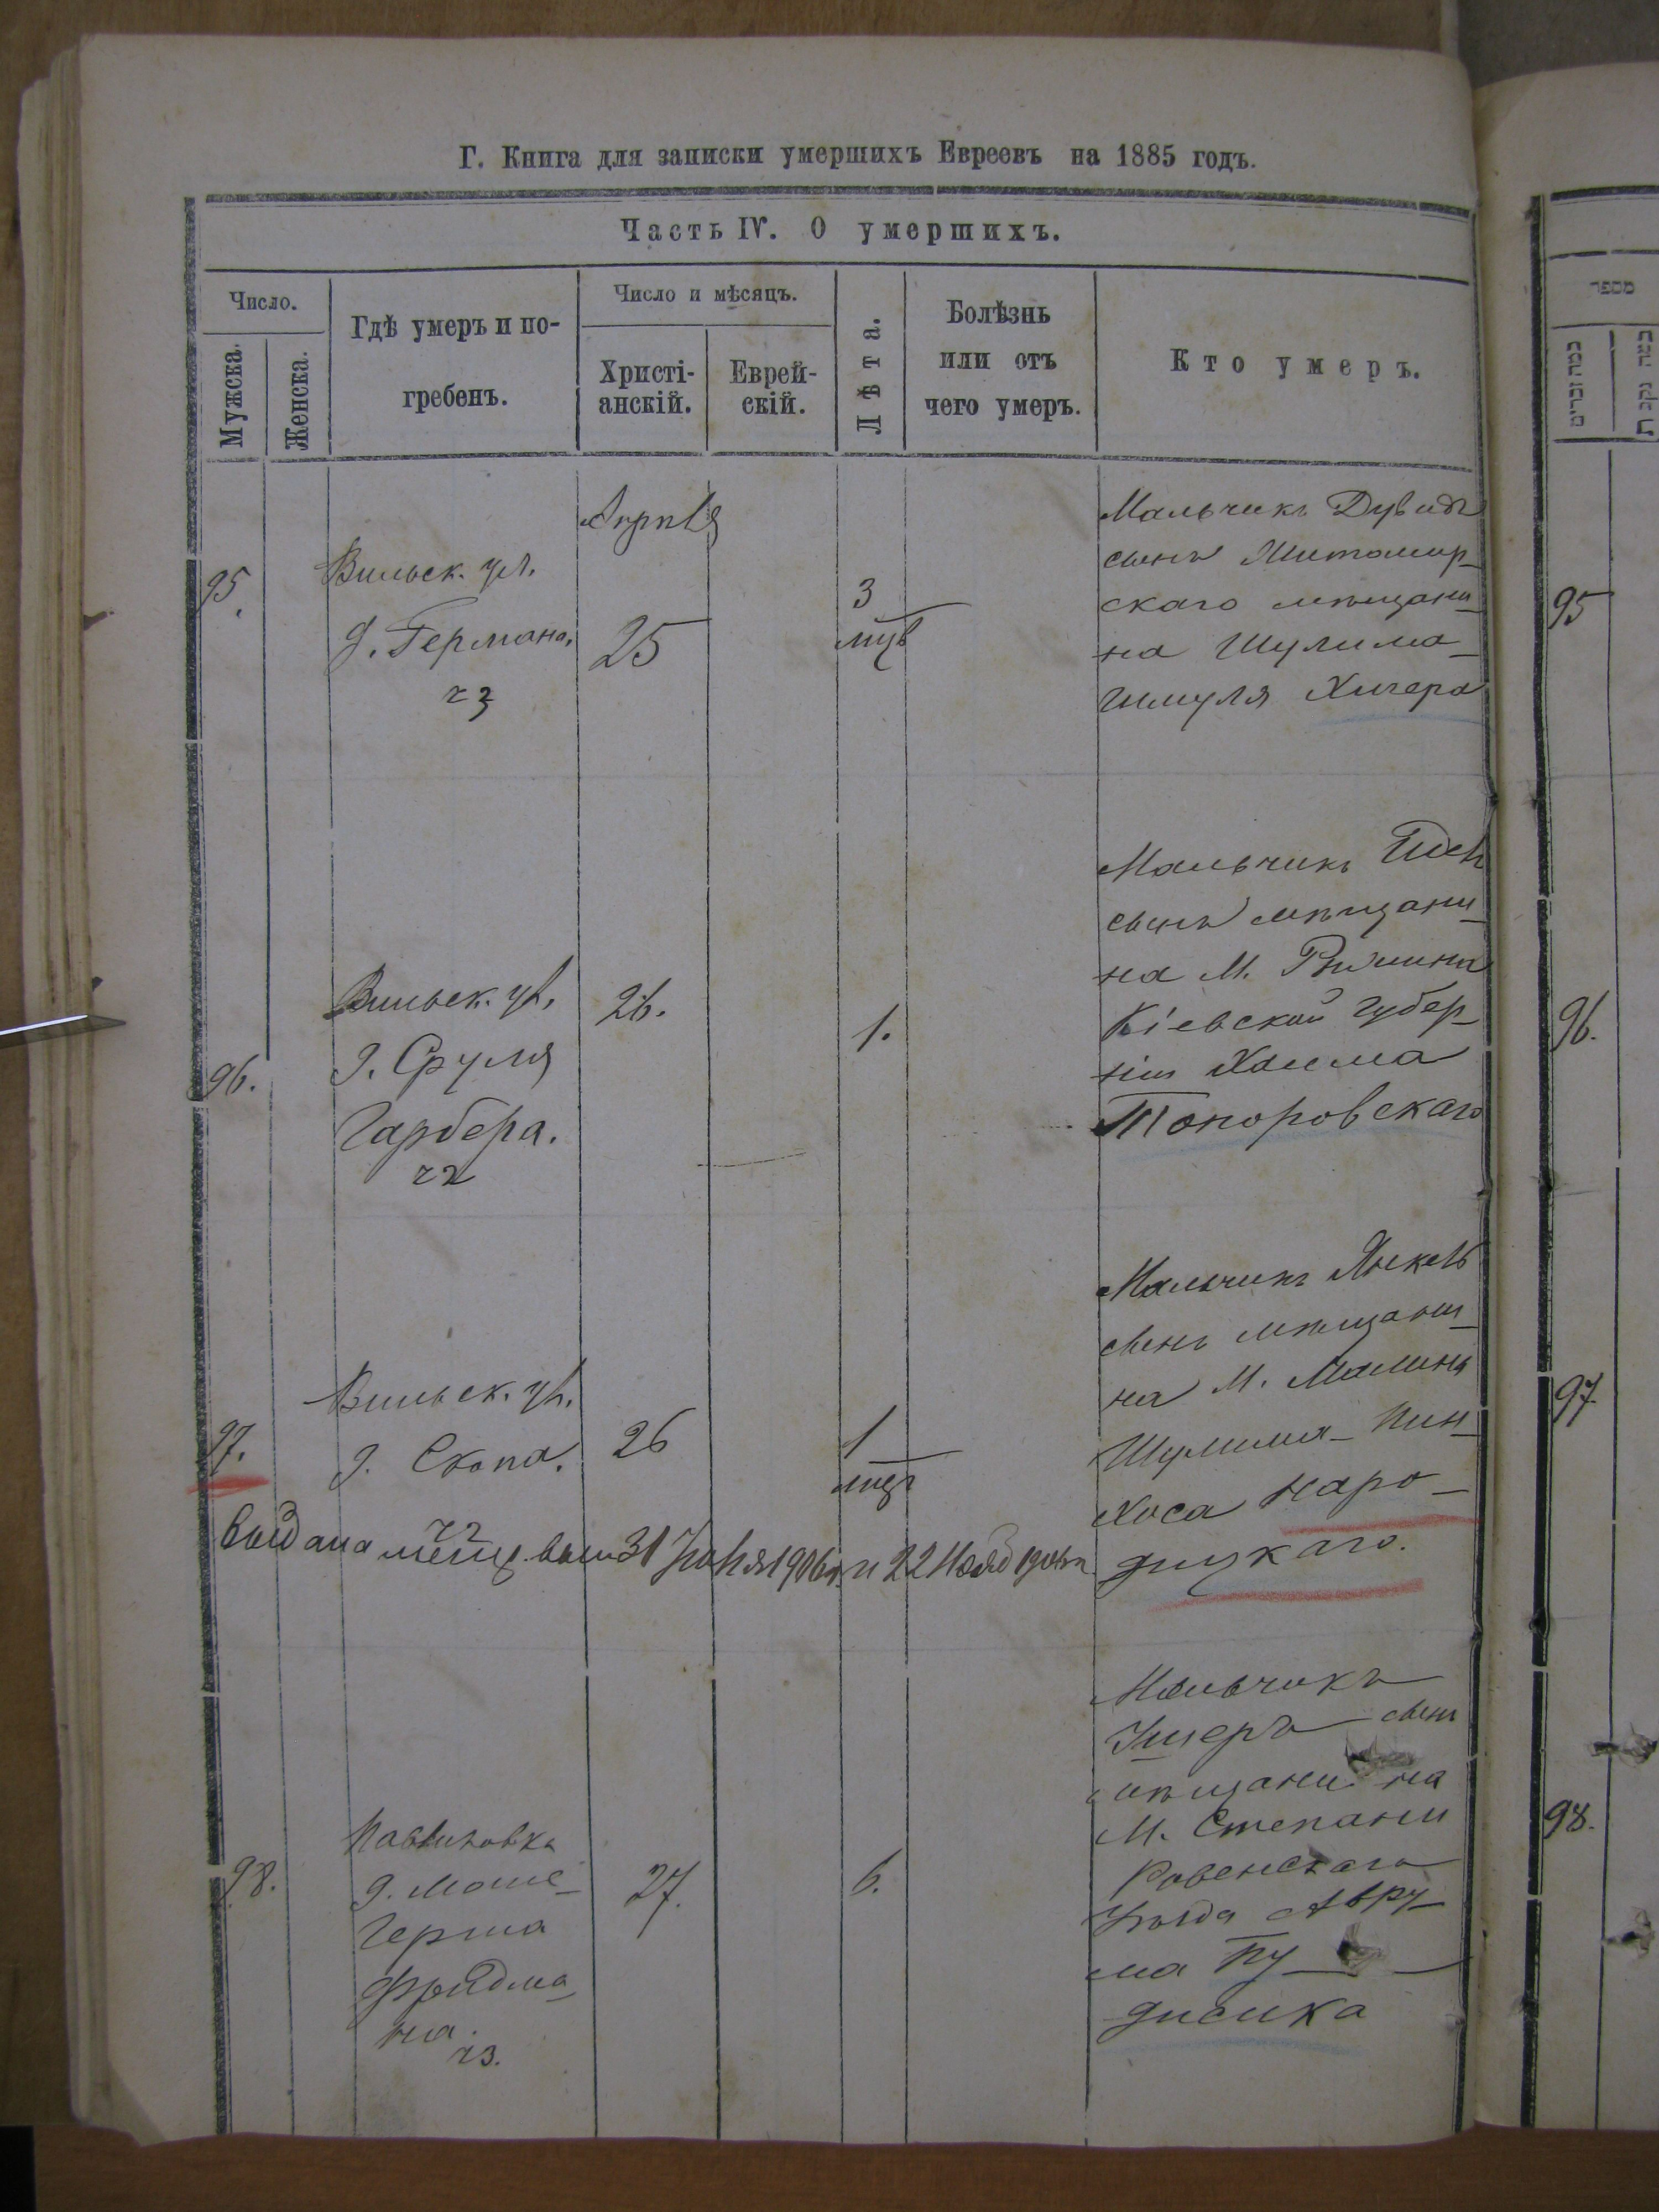 Г. Книга для записки умершихъ Евреевъ на 1885 годъ.
Часть IV. О умершихъ.
Число.
Мужска.
Женска.
Гдѣ умеръ и по-
гребенъ.
Число и мѣсяцъ.
Христі-
анскій.
Еврей-
скій.
Лѣта.
Болѣзнь
или отъ
чего умеръ.
Кто умеръ.
95.
Вильск. ул.
д. Германа.
ч3
Апрѣля
25
3
мцв
Мальчикъ Дувидъ
сынъ Житомир-
скаго мѣщани-
на Шулима-
Шмуля Хигера
96.
Вильск. ул.
д. Сруля
Гарбера.
ч2
26.
1.
Мальчикъ
сынъ мѣщани-
на М.
Кіевской губер-
ніи Хаима
Топоровскаго
97.
Вильск. ул.
д. Скопа.
ч2
26
1
мцъ
Мальчикъ Янкель
сынъ мѣщани-
на М. Малина
Шулима-Пин-
хоса Наро-
дицкаго.
Выдана метр. вып. 31 1906 г. и 22 Нояб 1906 г.
98.
Павликовка
д. Моше-
Герша
Фридма-
на.
ч3.
27.
6.
Мальчикъ
Ушеръ сынъ
мѣщанина
М. Степани
Ровенскаго
Уѣзда Авру-
ма Пу-
дисика
מספר
95
96.
97
98.